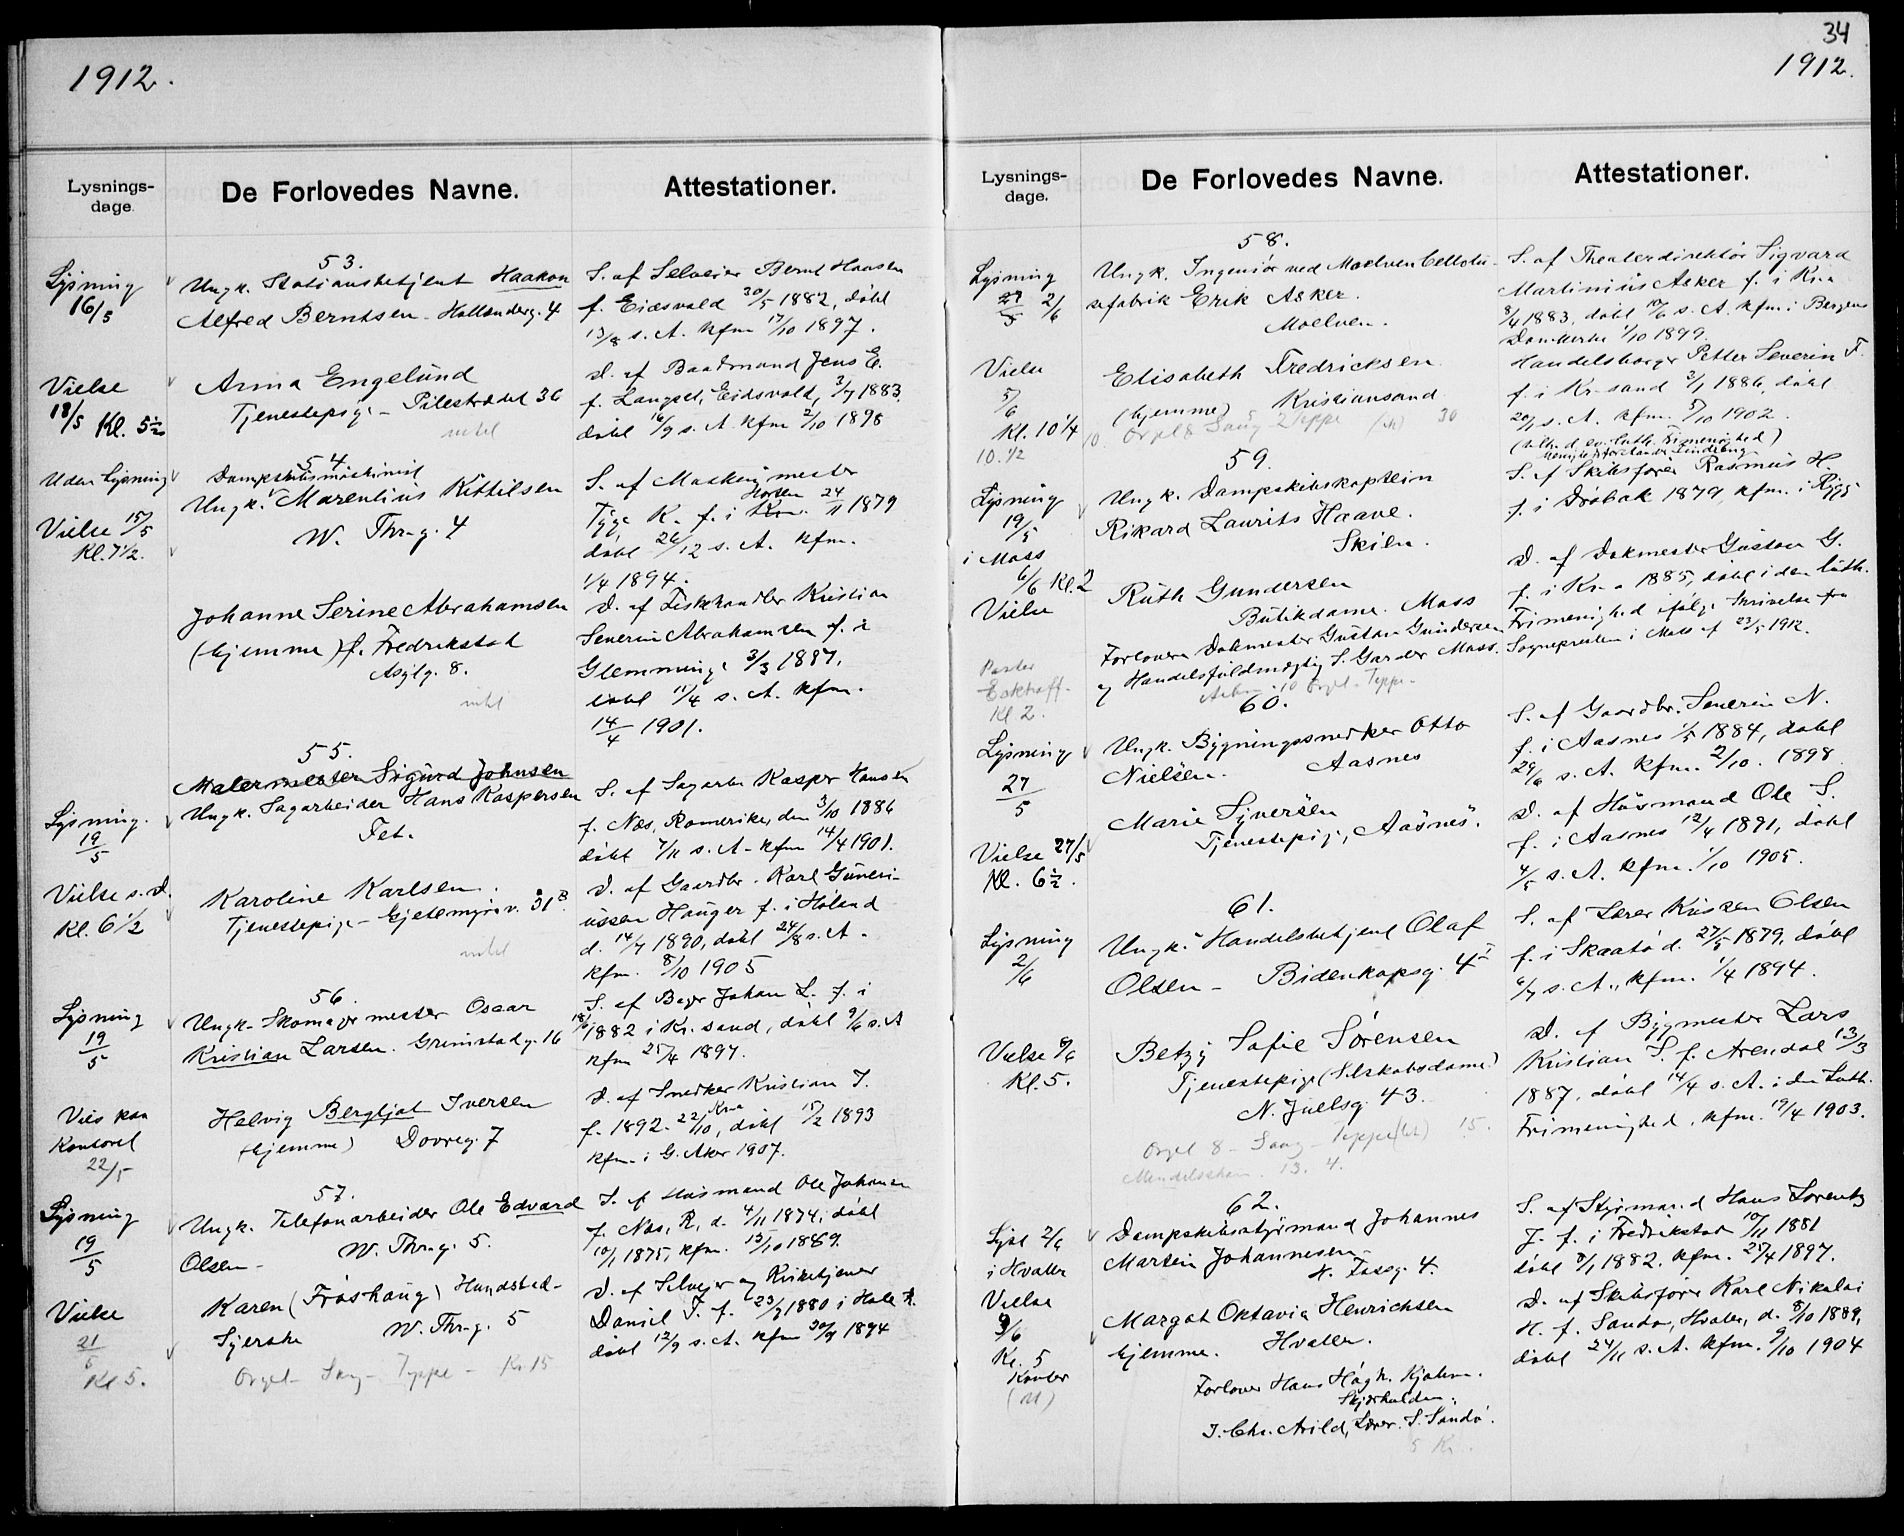 1912.
Lysnings-
dage.
De Forlovedes Navne.
Attestationer.
Lysning
16/5
Vielse
18/5 Kl. 5½
53.
Ungk. Stationsbetjent Haakon
Alfred Berntsen - Hollenderg. 4
Anna Engelund
Tjenestepige - Pilestrædet 36
intet
S. af Selveier Bernt Hansen
f. Eidsvold 30/5 1882, døbt
13/8 s. A. kfm 17/10 1897.
D. af Baadsmand Jens E.
f. Langset, Eidsvold, 3/7 1883.
døbt 16/9 s. A. kfm 2/10 1898
Uden Lysning
Vielse 15/5
Kl. 7½.
54
Dampskibsmaskinist
Ungk. Marentius Kittilsen
W. Thr. g. 4
Johanne Serine Abrahamsen
(hjemme) f. Fredrikstad
Asylg. 8.
intet
S. af Maskinmester
Tygge K. f. i Horten 24/11 1879
døbt 26/12 s. A. kfm.
1/4 1894.
D. af Fiskehandler Kristian
Severin Abrahamsen f. i
Glemminge 3/3 1887,
døbt 11/4 s. A. kfm.
14/4 1901.
Lysning.
19/5
Vielse s. D.
Kl. 6½
55.
Malermester Sigurd Johnsen
Ungk. Sagarbeider Hans Kaspersen
Fet.
Karoline Karlsen.
Tjenestepige - Gjetemyrsv. 31 B.
intet
S. af Sagarb. Kasper Hansen
f. Nes, Romerike, den 3/10 1886
døbt 7/11 s. A. kfm 14/4 1901.
D. af Gaardbr. Karl Guneri-
ussen Hauger f. i Høland
d. 14/7 1890, døbt 24/8 s. A.
kfm. 8/10 1905
Lysning
19/5
Vies paa
Kontoret
22/5
56.
Ungk. Skomagermester Oscar
Kristian Larsen. Grimstadg. 16
Helvig Bergljot Iversen
(hjemme) Dovreg. 7
S. af Bager Johan L. f. i
1882 i Kr. sand, døbt 9/6 s. A
kfm 25/4 1897.
D. af Snedker Kristian I.
f. 1892. 22/10 Kra, døbt 15/2 1893
kfm. i G. Aker 1907.
Lysning
19/5
Vielse
21/5
Kl 5.
57.
Ungk. Telefonarbeider Ole Edvard
Olsen - W. Thr. g. 5.
Karen (Frøshaug) Hundstad-
Gjerske W. Thr. g. 5
Orgel - Sang - Teppe - Kr 15
S. af Husmand Ole Johansen
f. Nes, R, d. 4/11 1874, døbt
10/1 1875, kfm. 13/10 1889.
D. af Selveier og Kirketjener
Daniel T. f. 23/7 1880 i Hole R.
døbt 12/9 s. A. kfm 30/9 1894
34
1912.
Lysnings-
dage.
De Forlovedes Navne.
Attestationer.
Lysning
27/5 2/6
Vielse
5/6
Kl. 10¼
10.½
58.
Ungk. Ingeniør ved Moelven Cellulo-
sefabrik Erik Asker.
Moelven.
Elisabeth Fredricksen
(hjemme) Kristiansand
10. Orgel 8 Sang 5 Teppe 30
S. af Theaterdirektør Sigvard
Martinius Asker f. i Kr.a
8/4 1883, døbt 10/6 s. A. kfm. i Bergens
Domkirke 1/10 1899.
Handelsborger Petter Severin F.
f. i Kr.sand 3/1 1886, døbt
20/5 s. A. kfm. 5/10 1902.
Lysning
19/5
i Moss
6/6 Kl. 2
Vielse
Pastor
Eckhoff.
Kl 2.
59.
Ungk. Dampskibskaptein
Rikard Laurits Haave.
Skien.
Ruth Gundersen
Butikdame. Moss
Forlovere Dokmester Gustav Gundersen
og Handelsfuldmægtig S. Garder Moss.
S. af Skibsfører Rasmus H.
f. i Drøbak 1879 kfm. i Rygge
D. af Dokmester Gustav G.
f. i Kr.a 1885, døbt i den luth.
Frimenighed ifølge Skrivelse fra
Sognepresten i Moss af 23/5 1912.
Lysning
27/5
Vielse 27/5
Kl. 6½.
60.
Ungk. Bygningssnedker Otto
Nielsen. Aasnes
Marie Syversen
Tjenestepige, Aasnes.
S. af Gaardbr. Severin N.
f. i Aasnes 1/5 1884, døbt
29/6 s. A. kfm. 2/10. 1898
D. af Husmand Ole S.
f. i Aasnes 12/4 1891, døbt
4/5 s. A. kfm. 1/10 1905.
Lysning
2/6
Vielse 9/6
Kl. 5.
61.
Ungk. Handelsbetjent Olaf
Olsen - Bidenkapsg. 4 I
Betzy Sofie Sørensen
Tjenestepige (Selskabsdame)
N. Juelsg. 43.
Orgel 8 - Sang - Teppe 15.
Mendelssohn. 13. 4.
S. af Lærer Kristen Olsen
f. i Skaatø d. 27/5 1879, døbt
6/7 s. A., kfm. 1/4 1894.
D. af Bygmester Lars
Kristian S. f. Arendal 13/3
1887, døbt 14/4 s. A. i den Luth.
Frimenighed, kfm. 19/4 1903.
Lyst 2/6
i Hvaler
Vielse
9/6
Kl. 5
Kontor
62.
Dampskibsstyrmand Johannes
Martin Johannesen
H. Tossg. 4.
Margot Oktavia Henrichsen
hjemme. Hvaler.
Forlover Hans Høgh. Kjølner.
Skjærhalden.
J. Chr. Arild, Lærer. S. Sandø.
5 Kr.
S. af Styrmand Hans Lorentz
J. f. i Fredrikstad 10/11 1881
døbt 8/1 1882. kfm. 25/4 1897.
D. af Skibsfører Karl Nikolai
H. f. Sandø, Hvaler, d. 8/10 1889,
døbt 24/11 s. A. kfm. 9/10 1904